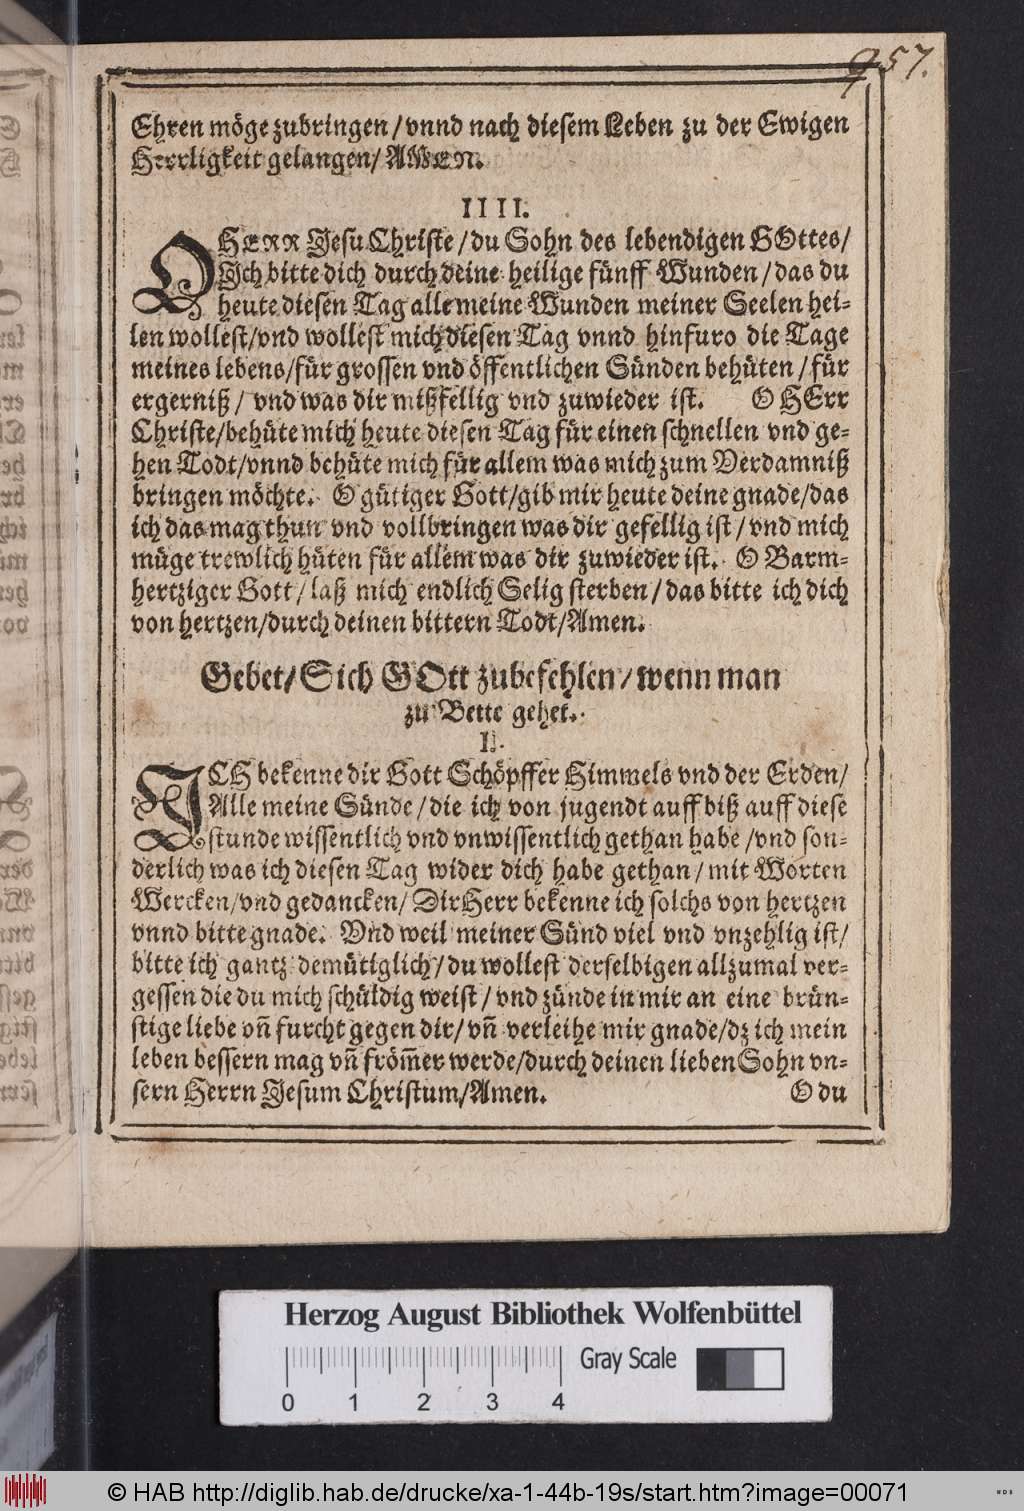 957.
Ehren möge zubringen / vnnd nach diesem Leben zu der Ewigen
Herrligkeit gelangen / AMEN.
IIII.
O HERR Jesu Christe / du Sohn des lebendigen GOttes /
Ich bitte dich durch deine heilige fünff Wunden / das du
heute diesen Tag alle meine Wunden meiner Seelen hei-
len wollest / vnd wollest mich diesen Tag vnnd hinfuro die Tage
meines lebens / für grossen vnd öffentlichen Sünden behüten / für
ergerniß / vnd was dir mißfellig vnd zuwieder ist. O HErr
Christe / behüte mich heute diesen Tag für einen schnellen vnd ge-
hen Todt / vnnd behüte mich für allem was mich zum Verdamniß
bringen möchte. O gütiger Gott / gib mir heute deine gnade / das
ich das mag thun vnd vollbringen was dir gefellig ist / vnd mich
müge trewlich hüten für allem was dir zuwieder ist. O Barm-
hertziger Gott / laß mich endlich Selig sterben / das bitte ich dich
von hertzen / durch deinen bittern Todt / Amen.
Gebet / Sich GOtt zubefehlen / wenn man
zu Bette gehet.
I.
ICH bekenne dir Gott Schöpffer Himmels vnd der Erden /
Alle meine Sünde / die ich von jugendt auff biß auff diese
stunde wissentlich vnd vnwissentlich gethan habe / vnd son-
derlich was ich diesen Tag wider dich habe gethan / mit Worten
Wercken / vnd gedancken / Dir Herr bekenne ich solchs von hertzen
vnnd bitte gnade. Vnd weil meiner Sünd viel vnd vnzehlig ist /
bitte ich gantz demütiglich / du wollest derselbigen allzumal ver-
gessen die du mich schüldig weist / vnd zünde in mir an eine brün-
stige liebe vñ furcht gegen dir / vñ verleihe mir gnade / dz ich mein
leben bessern mag vñ from̃er werde / durch deinen lieben Sohn vn-
sern Herrn Jesum Christum / Amen. O du
Herzog August Bibliothek Wolfenbüttel
Gray Scale
0 1 2 3 4
© HAB http://diglib.hab.de/drucke/xa-1-44b-19s/start.htm?image=00071